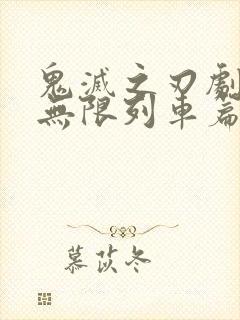 鬼滅之刃劇
無限列車篇
慕茯冬